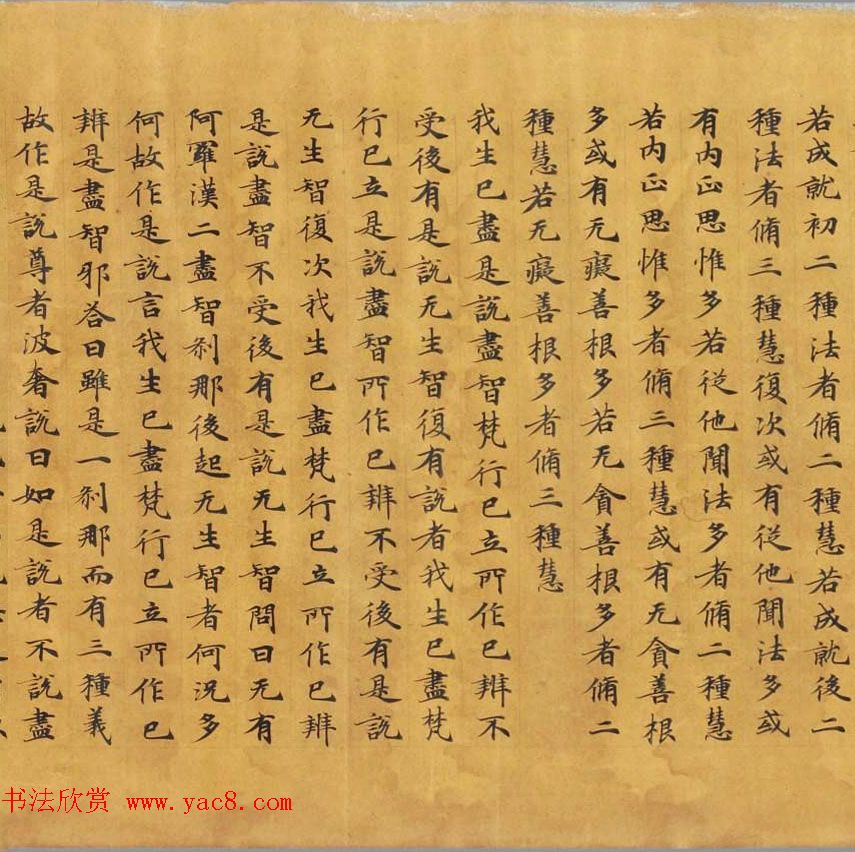 若成就初二種法者脩二種慧若成就後二
種法者脩三種慧復次或有從他聞法多或
有內正思惟多若從他聞法多者脩二種慧
若內正思惟多者脩三種慧或有无貪善根
多或有无癡善根多若无貪善根多者脩二
種慧若无癡善根多者脩三種慧
我生已盡是說盡智梵行已立所作已辦不
受後有是說无生智復有說者我生已盡梵
行已立是說盡智所作已辦不受後有是說
无生智復次我生已盡梵行已立所作已辦
是說盡智不受後有是說无生智問曰无有
阿羅漢二盡智剎那後起无生智者何況多
何故作是說言我生已盡梵行已立所作已
辦是盡智耶答曰雖是一剎那而有三種義
故作是說尊者波奢說曰如是說者不說盡
书法欣赏 www.yac8.com